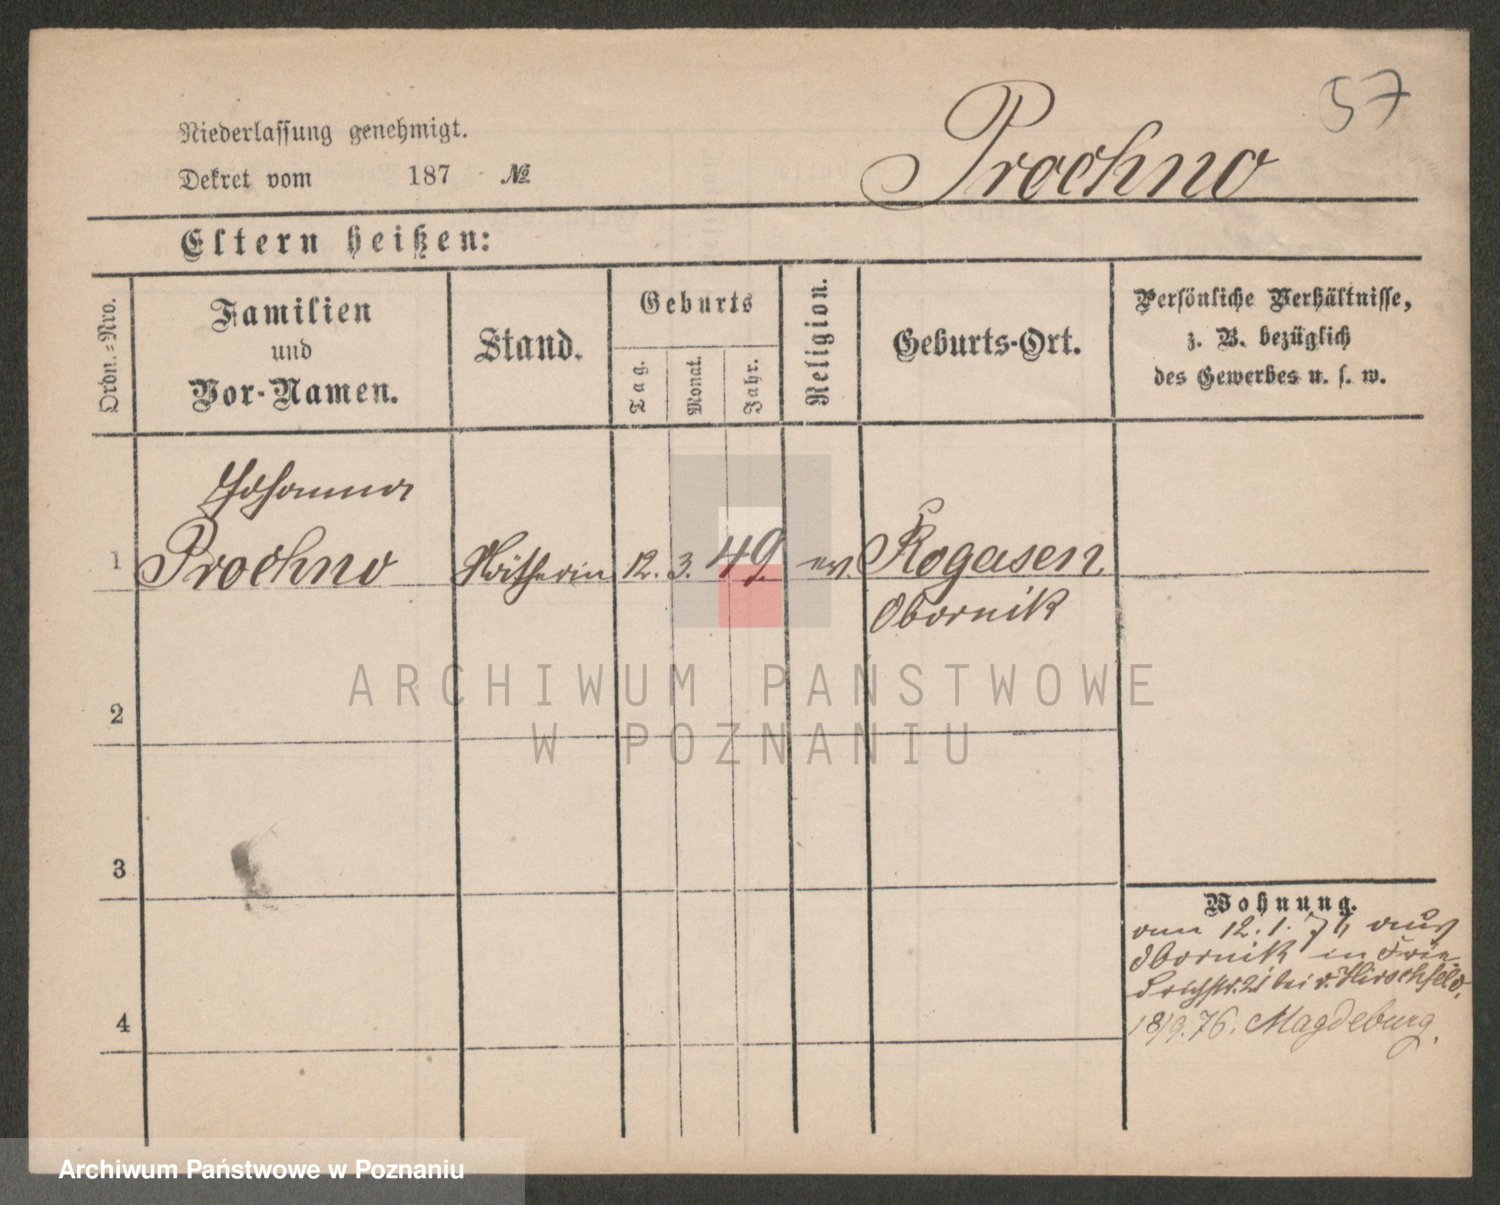 57
Niederlassung genehmigt.
Dekret vom 187 №
Prochno
Eltern heißen:
Ordn.=Nro.
Familien
und
Vor-Namen.
Stand.
Geburts
Tag.
Monat.
Jahr.
Religion.
Geburts-Ort.
Persönliche Verhältnisse,
z. B. bezüglich
des Gewerbes u. s. w.
Johanna
1 Prochno 12. 3. 49. ev. Rogasen
Obornik
ARCHIWUM PAŃSTWOWE
W POZNANIU
2
3
4
Wohnung.
am 12. 1. aus
Obornik in Frie-
drichstr. bei v. Hirschfeld.
18/9.76. Magdeburg.
Archiwum Państwowe w Poznaniu